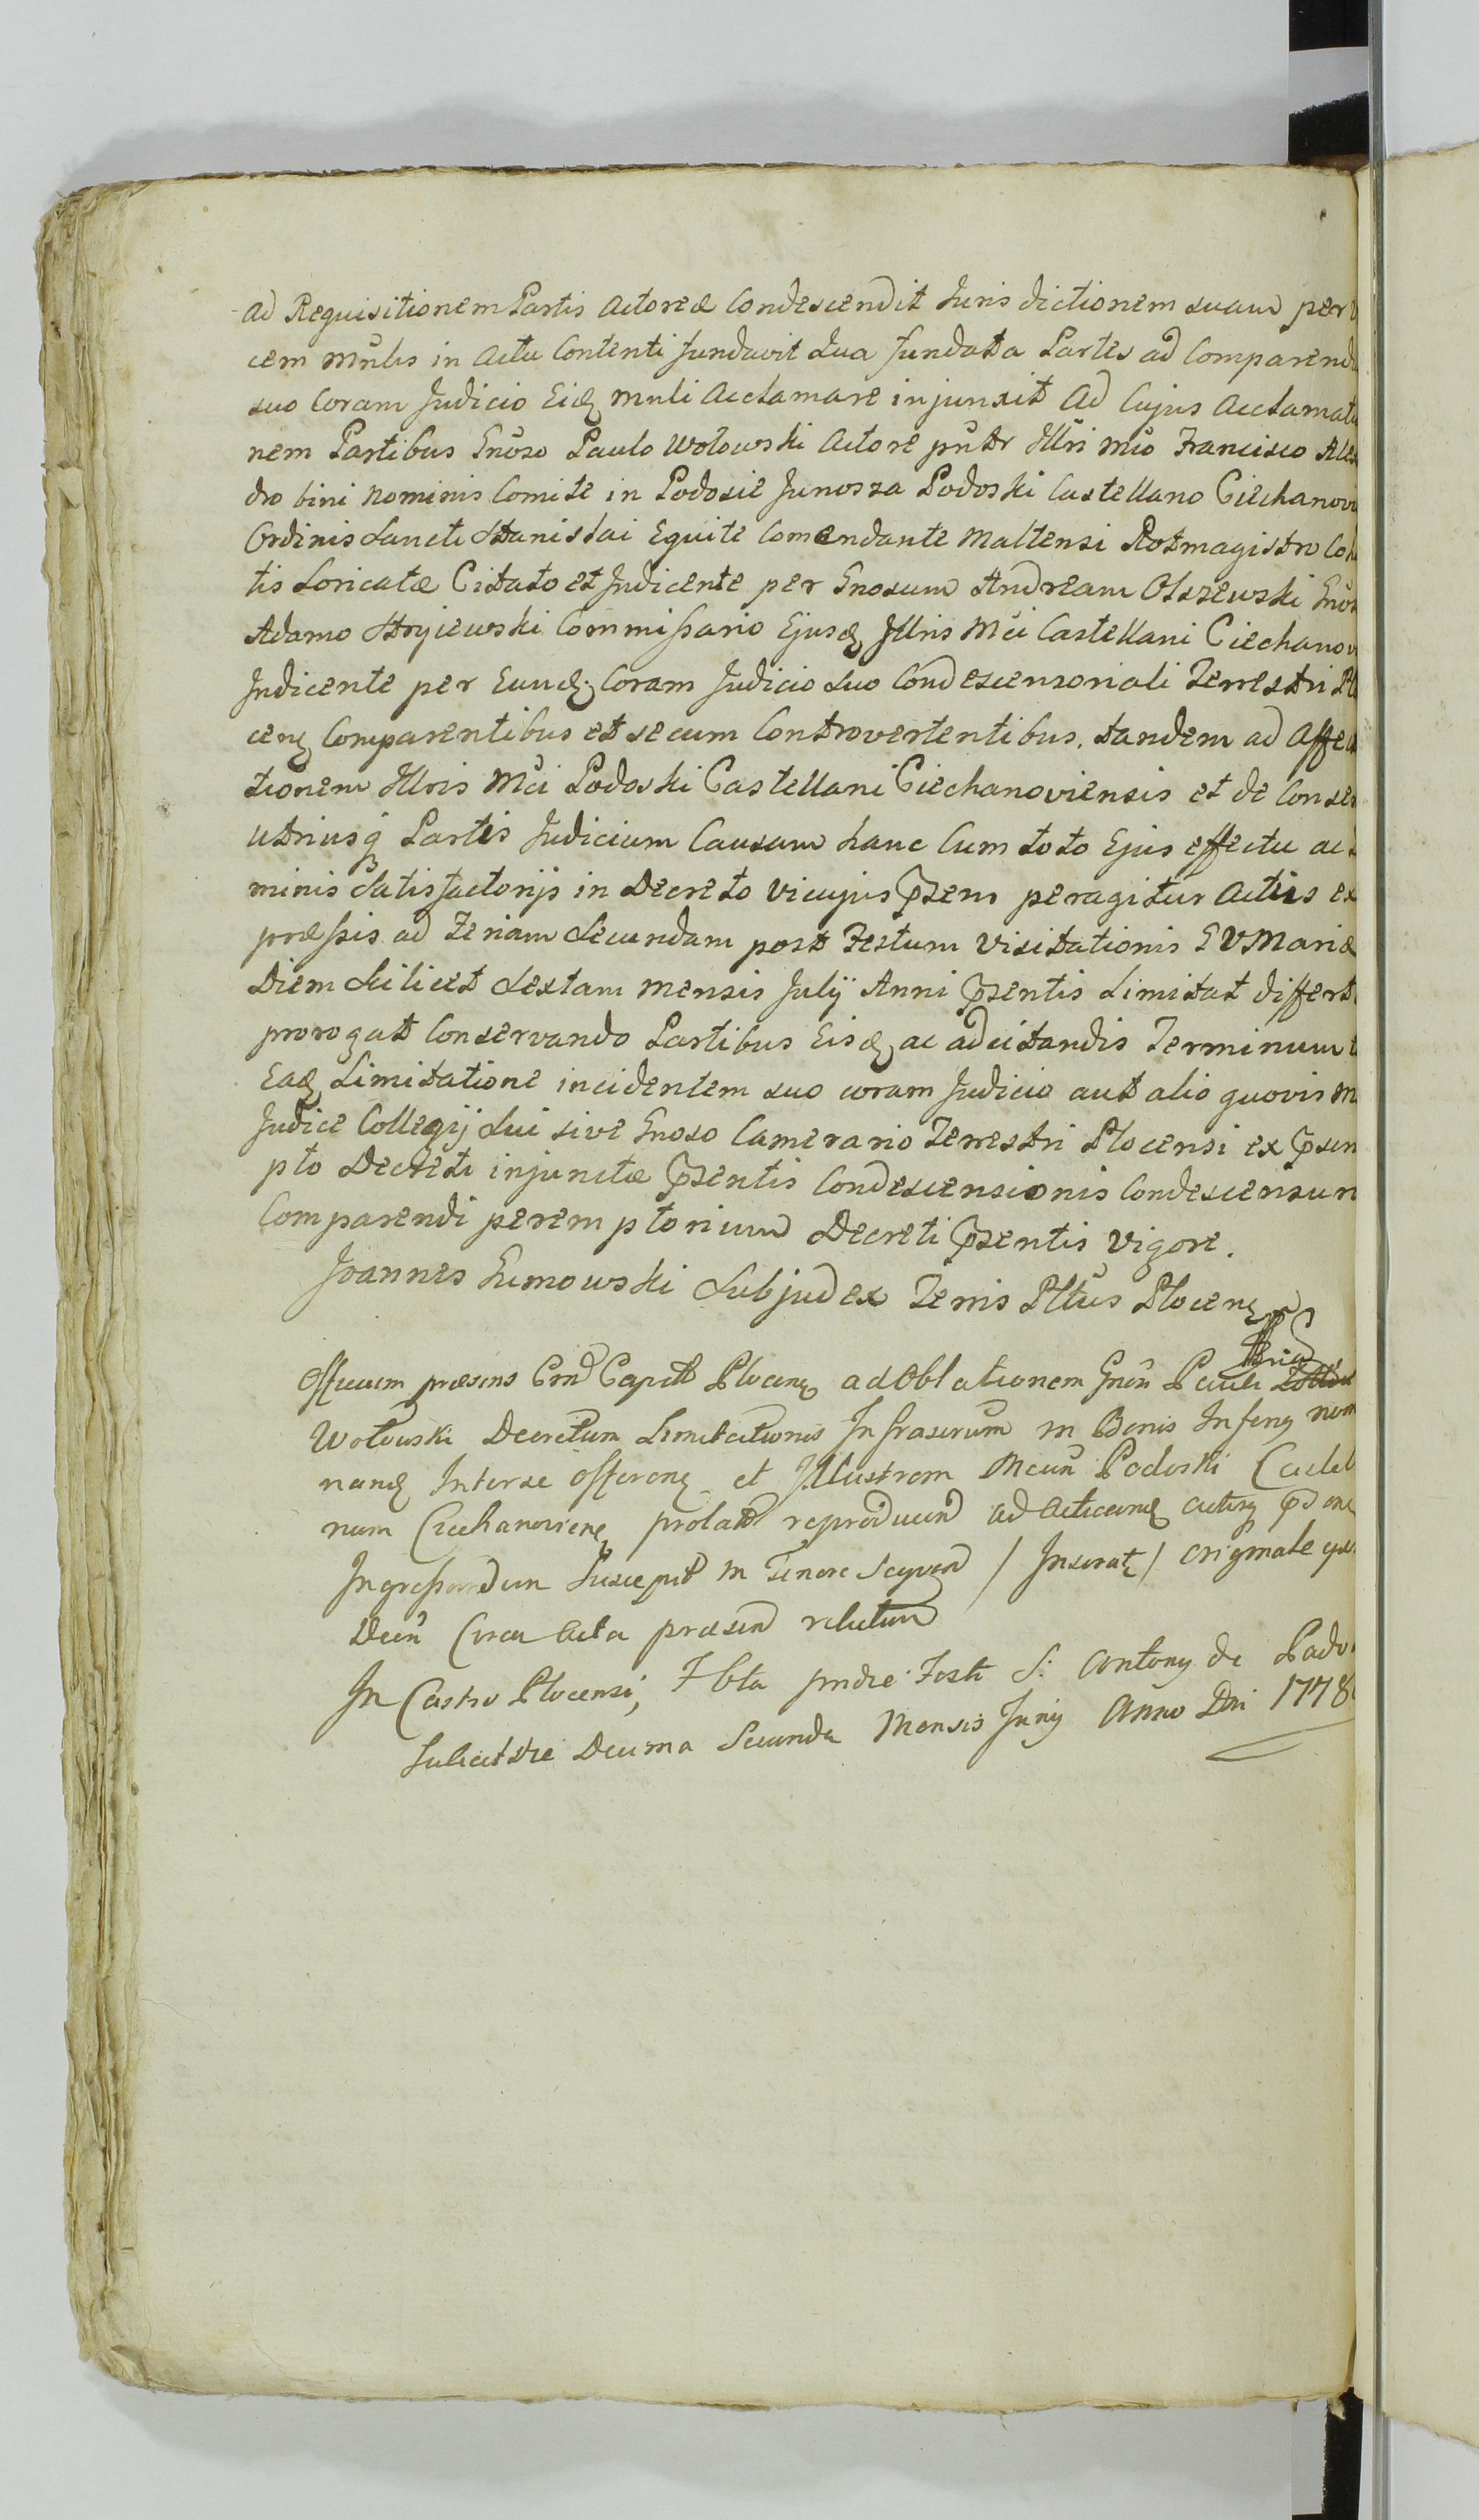 ad Requisitionem Partis Actoreæ Condescendit Juris dictionem suam per
cem mnlis in Actu Contenti fundavit Qua fundata Partes ad Comparend
suo Coram Judicio Eid mnli Acclamare injunxit Ad Cujus Acclamat
nem Partibus Gnoso Paulo Wołowski Actore pntr Illri Mco Francisco Ale
dro bini Nominis Comite in Podosie Junosza Podoski Castellano Ciechanov
Ordinis Sancti Stanislai Equite Comendante Maltensi Rotmagistro Coh
tis Loricatæ Citato et Judicente per Gnosum Andream Olszewski Gnos
Adamo Stryiewski Commissario Ejusd Illris Mci Castellani Ciechanov
Judicente per Eund. Coram Judicio Suo Condescensoriali Terrestri Pl
cen Comparentibus et secum Controvertentibus. tandem ad Affec
tionem Illris Mci Podoski Castellani Ciechanoviensis et de Consen
utriusq Partis Judicium Causam hanc Cum toto Ejus effectu ac
minis Satisfactorijs in Decreto Vi cujus Psens peragitur Actus ex
pressis ad Feriam Secundam post Festum Visitationis B V Mariæ
Diem Scilicet Sextam Mensis Julÿ Anni Psentis Limitat differt
prorogat Conservando Partibus Eisd ac adcitandis Terminum
Ead Limitatione incidentem suo coram Judicio aut alio quovis
Judice Collegij Sui sive Gnoso Camerario Terrestri Plocensi ex Pscri
pto Decreti injunctæ Psentis Condescensionis Condescensur
Comparendi peremptorium Decreti Psentis Vigore.
Joannes Gumowski Subjudex Terris Pttus Plocen
Officium præsens Cnd Capit Plocens ad Oblationem Gnsi Pauli
Wołowski Decretum Limitationis Infrascrum in Bonis Infers nom
nand Interse offerens et Illustrem Mcum Podoski Castel
num Ciechanoviens prolat reproducend ad Acticand actisq
Ingrossandum Suscepit in Tenore Sequen / Inserat / Originale
Decti Circa Acta præsen relictum
In Castro Plocensi, Fbta pridie Festi S: Antony de Padv
Scilicet Die Decima Secunda Mensis Juny Anno Dni 1778